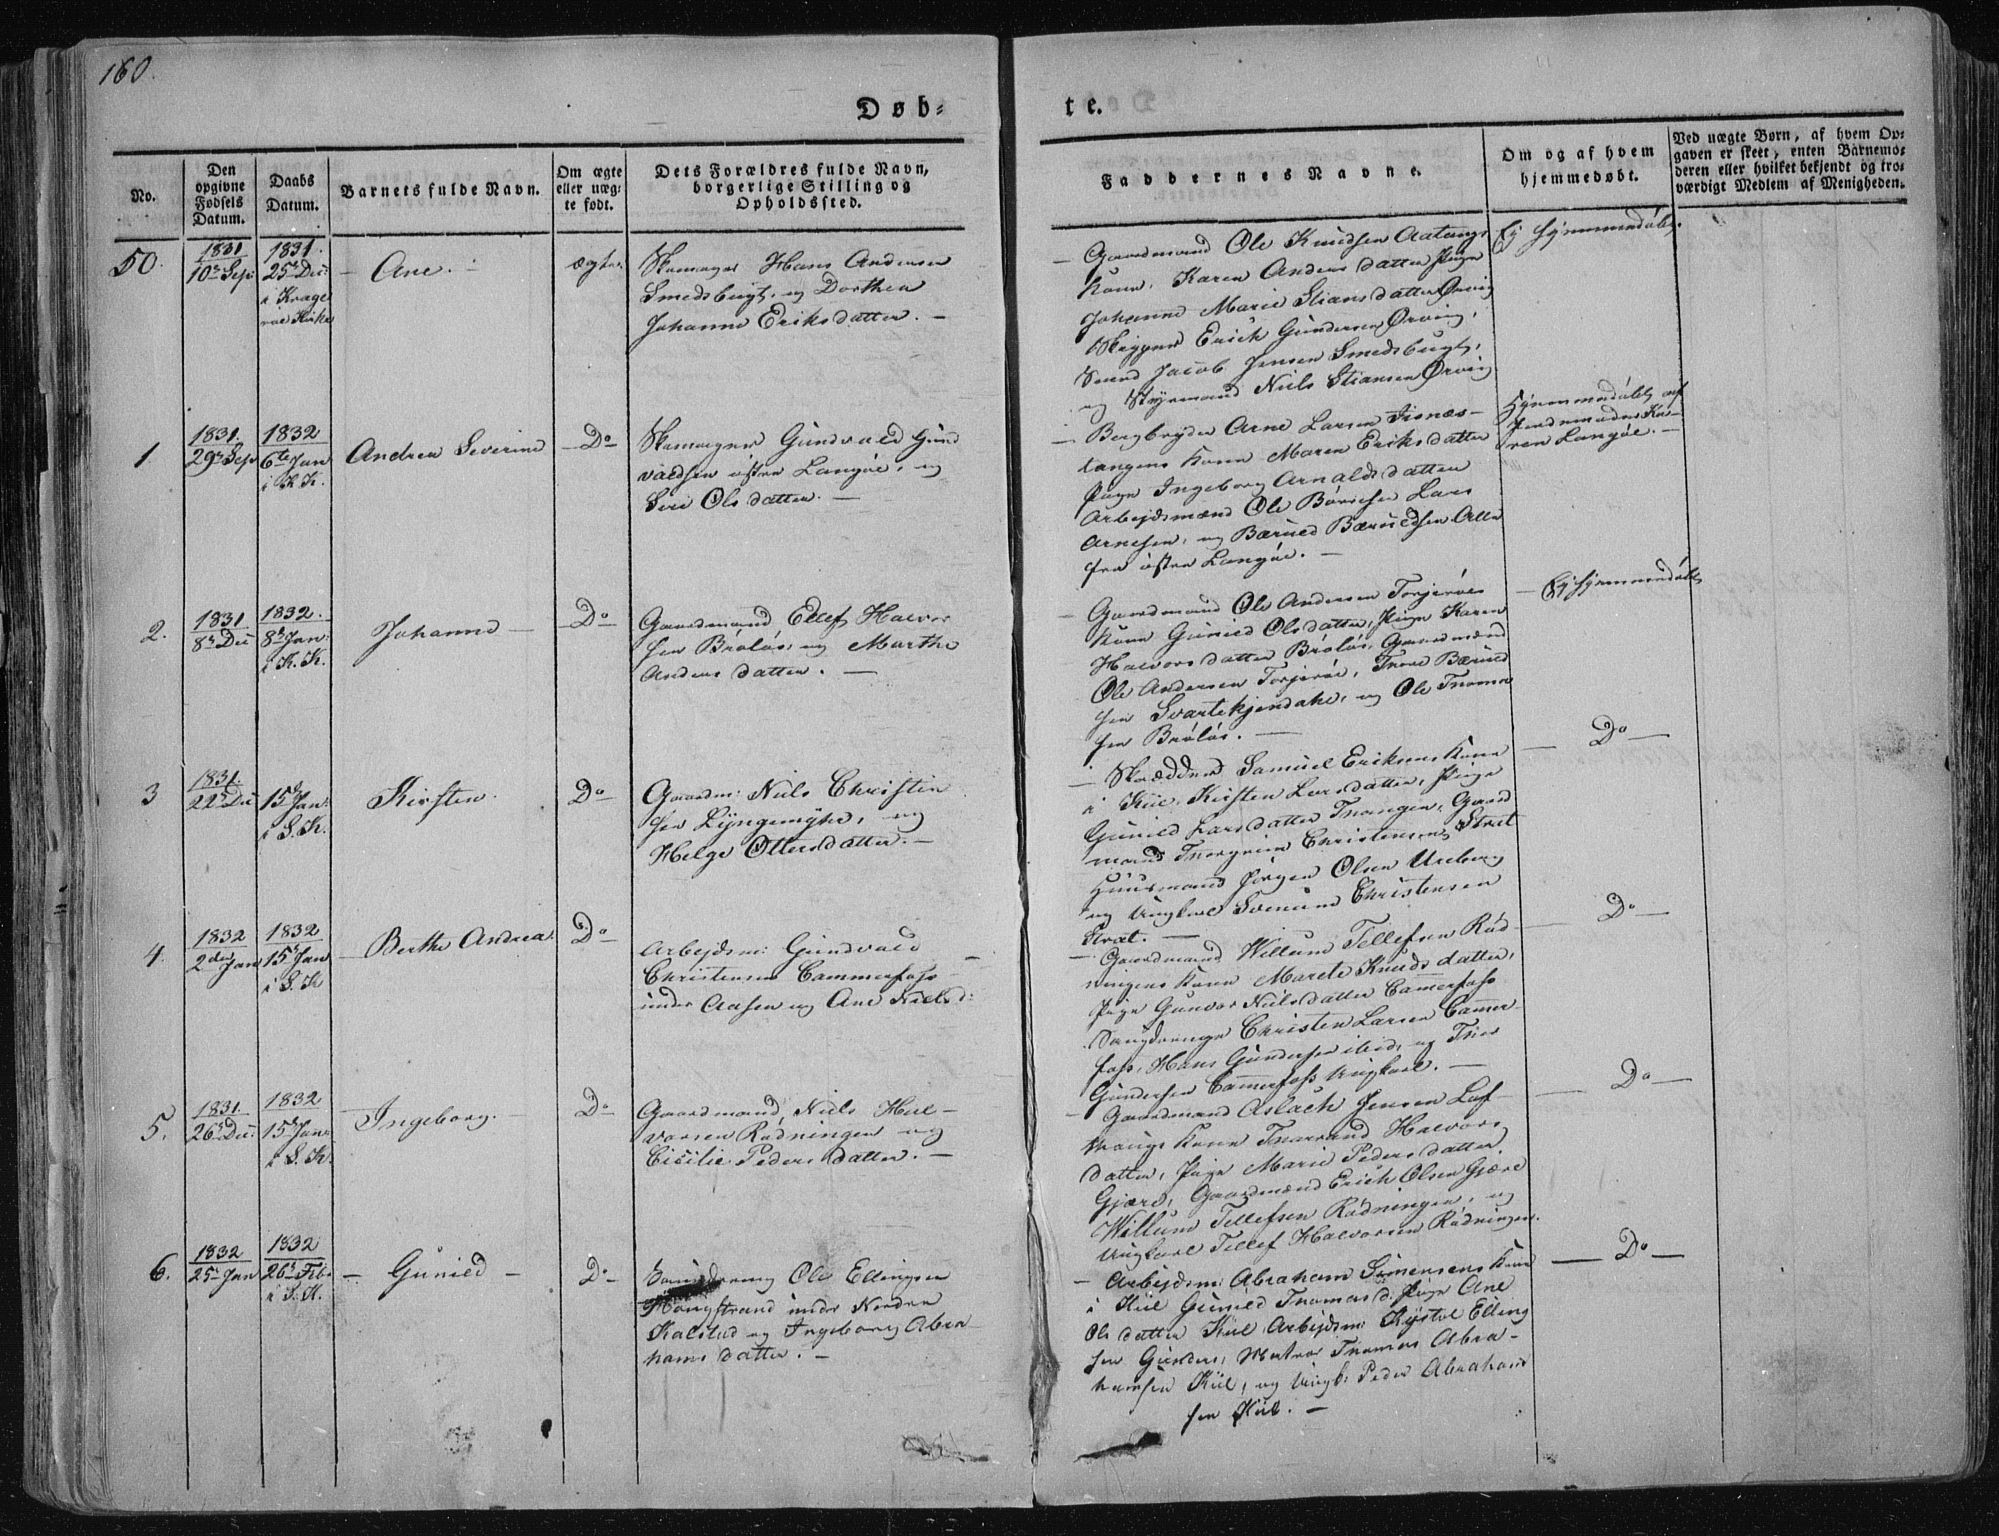 160.
Døb-
te.
No.
Den opgivne Fødsels Datum.
Daabs Datum.
Barnets fulde Navn.
Om ægte eller uægte født.
Dets Forældres fulde Navn, borgerlige Stilling og Opholdssted.
Faddernes Navne.
Om og af hvem hjemmedøbt.
Ved uægte Børn, af hvem Opgaven er skeet, enten Barnemoderen eller hvilket bekjendt og troværdigt Medlem af Menigheden.
50.
1831
10de Sep:
1831.
25de Dec:
i Krage
røe Kirke
Ane.
ægte.
Skomager Hans Andersen
Smedsbugt, og Dorthea
Johanne Eriksdatter. —
Gaardmand Ole Knudsen Aatangs
Kone, Karen Andersdatter, Pige
Johanne Marie Stiansdatter Ørvig
Skipper Erich Gundersen Ørvig,
Svend Jacob Jensen Smedsbugt,
og Styrmand Niels Stiansen Ørvig
Ej hjemmedøbt.
1.
1831.
29de Sep
1832
6te Jan
i K. K.
Andrea Severine
Do
Skomager Gundvald Gund
valdsen østre Langøe, og
Siri Olsdatter. —
Bergbryder Arne Larsen Fisnæs-
tangens Kone Maren Eriksdatter
Pige Ingeborg Arnaldsdatter
Arbejdsmænd Ole Børresen Lars
Arnesen, og Bærued Bæruedsen Alle
fra østre Langøe. —
Hjemmedøbt af
Jordemoder Ka-
ren Langøe. —
2.
1831
8de Dec
1832.
8de Jan:
i K. K.
Johanne —
Do
Gaardmand Ellef Halvor
sen Brøløs, og Marthe
Andersdatter. —
Gaardmand Ole Andersen Torjerøes
Kone Gunild Olsdatter, Pige Karen
Halvorsdatter Brøløs, Gaardmænd
Ole Andersen Torjerøe, Thore Bærued
sen Svartekjendahl, og Ole Thomæ
sen Brøløs. —
Ej hjemmedøbt
3
1831.
22de Dec
15de Jan:
i S. K.
Kirsten.
Do
Gaardm: Niels Christen
sen Lyngemyhr, og
Helge Ottersdatter. —
Skrædder Samuel Eriksens Kone
i Kiil, Kirsten Larsdatter, Pige
Gunild Larsdatter Tangen, Gaard
mand Thorgrim Christensen Stræt
Huusmand Jørgen Olsen Ureberg
og Ungkarl Svenund Christensen
Stræt. —
Do —
4.
1832
2den Jan
1832
15de Jan
i S. K
Berthe Andrea.
Do
Arbejdsm: Gundvald
Christensen Cammerfoss
under Aasen og Ane Nielsd:
Gaardmand Willum Tellefsen Rød-
ningens Kone Marete Knudsdatter,
Pige Gunvor Nielsdatter Camerfoss
Saugdrenge Christen Larsen Cammer-
foss, Hans Gundersen ibid, og Thor
Gundersen Cammerfoss Ungkarl. —
Do —
5.
1831.
26de Dec:
1832
15de Jan:
i S. K.
Ingeborg.
Do
Gaardmand Niels Hal-
vorsen Rødningen og
Cicilie Pedersdatter. —
Gaardmand Aslach Jensen Laf-
trangs Kone Tharrand Halvors
datter, Pige Marie Pedersdatter
Gjære, Gaardmænd Erich Olsen Gjære
Willum Tellefsen Rødningen, og
Ungkarl Tellef Halvorsen Rødningen.
Do —
6.
1832
25de Jan
1832
26de Feb:
i S. K.
Gunild —
Do
Saugdreng Ole Ellingsen
Hougstrand under Nordre
Kalstad og Ingeborg Abra-
hamsdatter. —
Arbejdsm: Abraham Simensens Kone
i Kiil Gunild Thomasd. Pige Ane
Olsdatter Kiil, Arbejdsm: Kystol Elling
sen Gunders, Matros Thomas Abra-
hamsen Kiil, og Ungk: Peder Abraham
sen Kiil. —
Do —